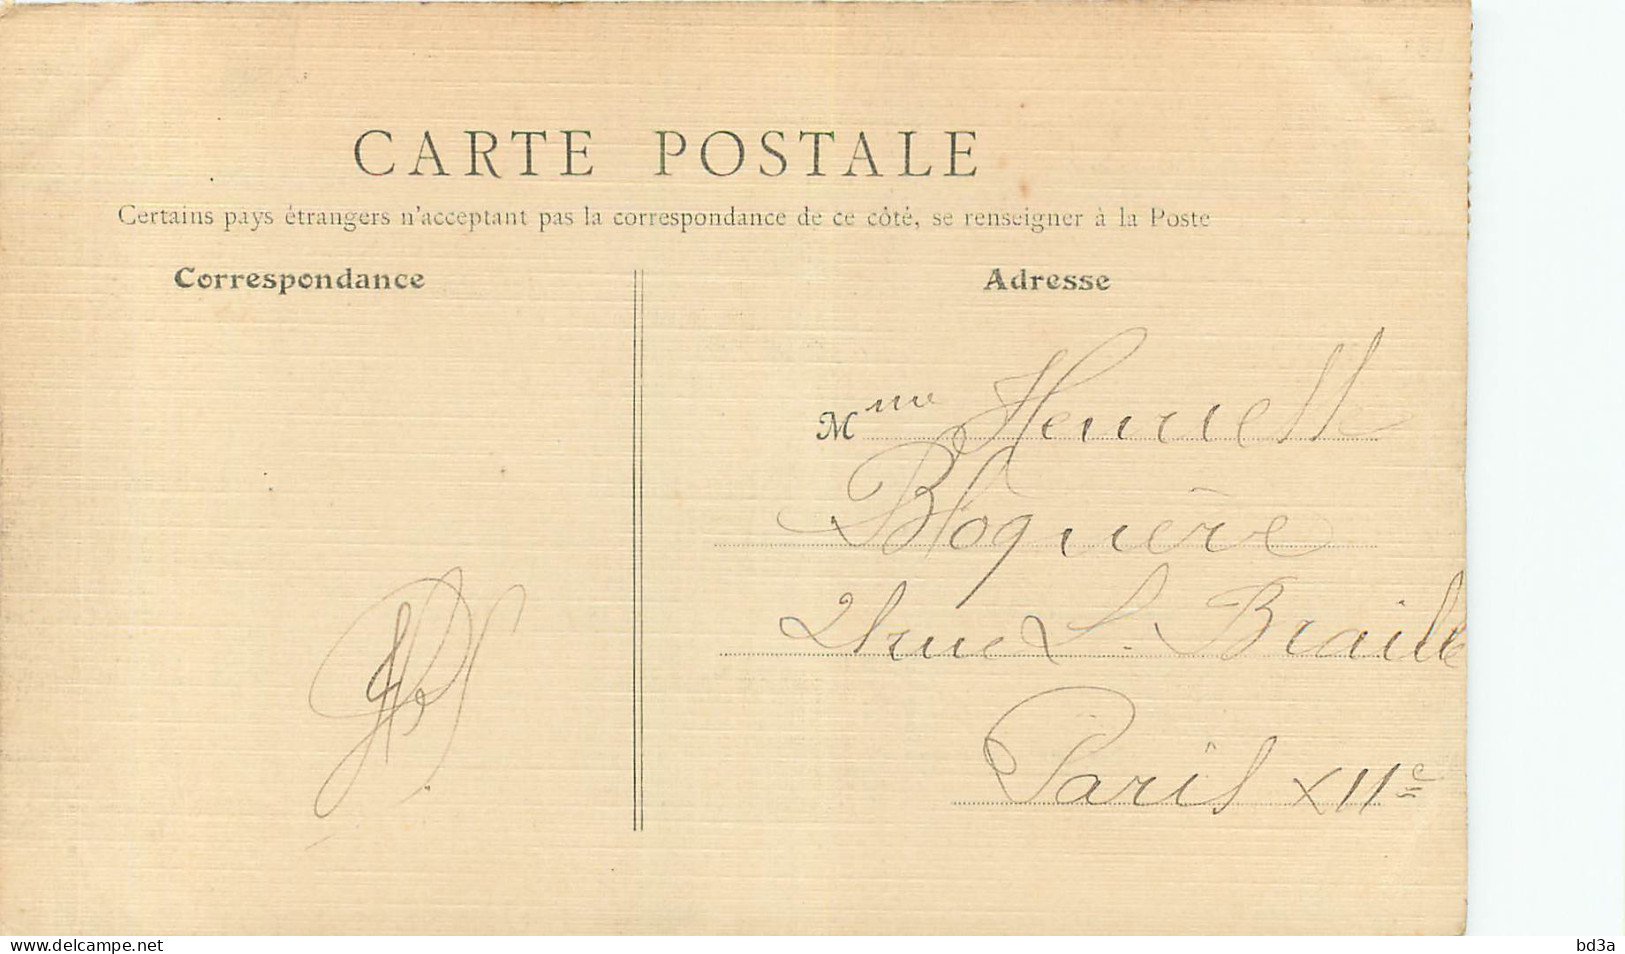 CARTE POSTALE
Certains pays étrangers n'acceptant pas la correspondance de ce côté, se renseigner à la Poste
Correspondance
Adresse
Mme Henriette
Bloquère
21 rue L. Braille
Paris XIIe
www.delcampe.net
bd3a